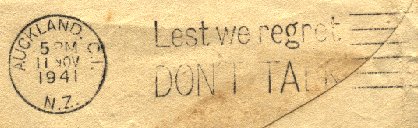 AUCKLAND. C.1.
5 PM
11 NOV
1941
N.Z.
Lest we regret
DON'T TALK